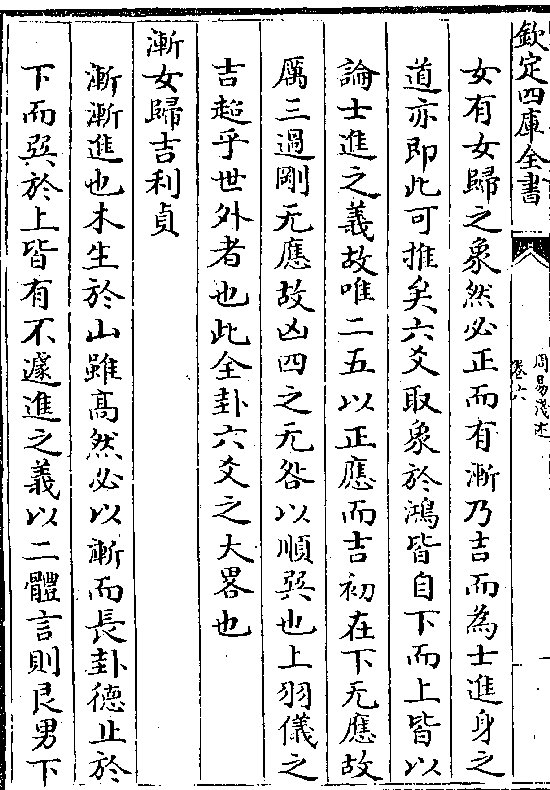 欽定四庫全書
周易淺述
卷六
女有女歸之象然必正而有漸乃吉而為士進身之
道亦即此可推矣六爻取象於鴻皆自下而上皆以
論士進之義故唯二五以正應而吉初在下无應故
厲三過剛无應故凶四之无咎以順巽也上羽儀之
吉超乎世外者也此全卦六爻之大畧也
漸女歸吉利貞
漸漸進也木生於山雖高然必以漸而長卦德止於
下而巽於上皆有不遽進之義以二體言則艮男下